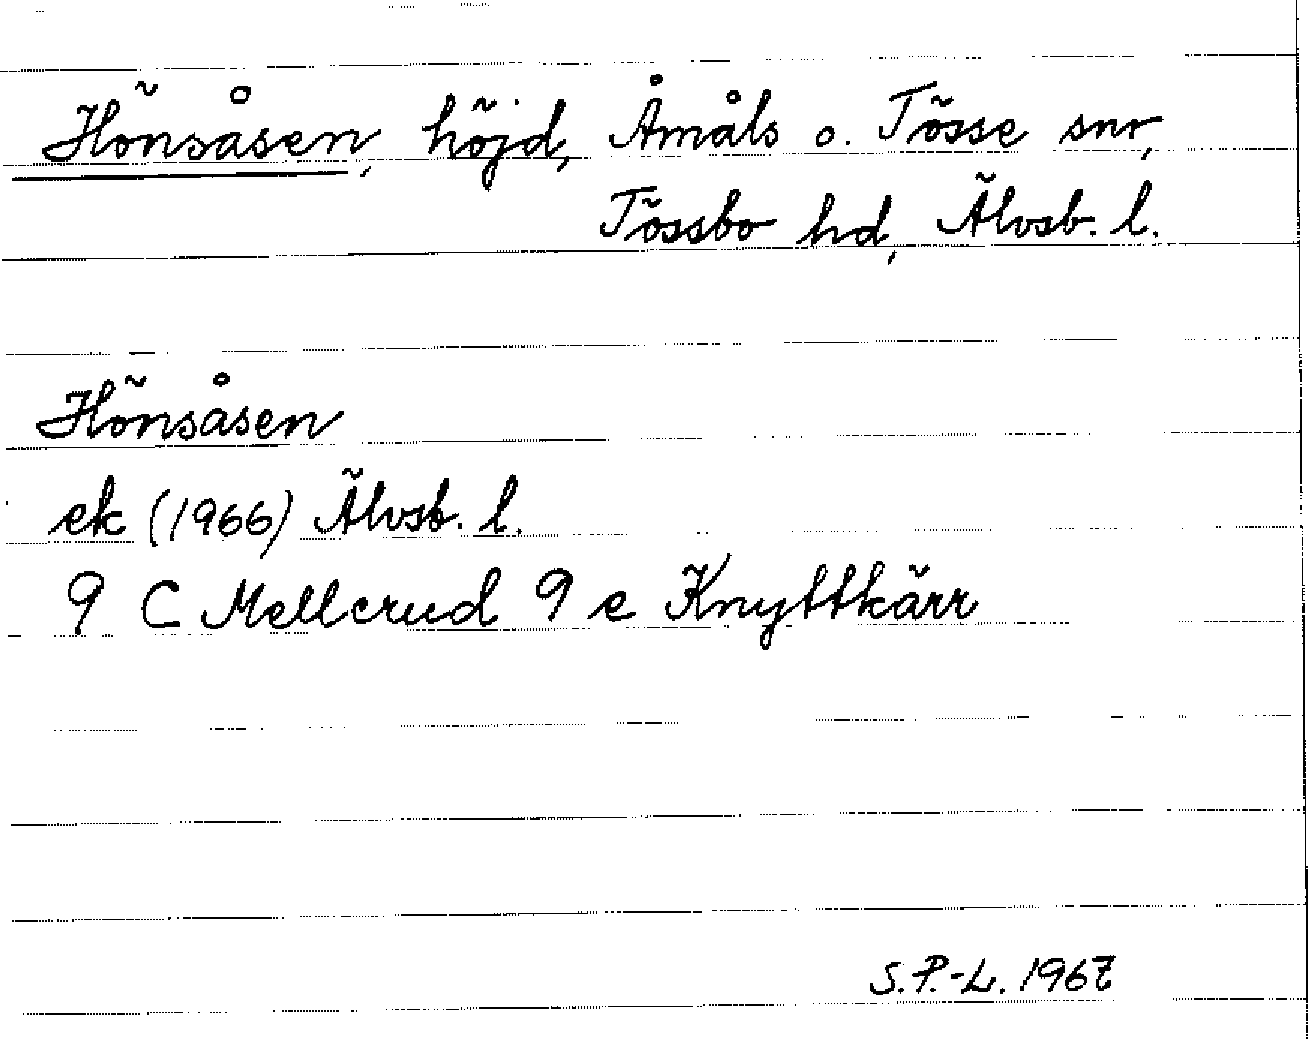 Hönsåsen, höjd, Åmåls o. Tösse snr,
Tössbo hd, Älvsb. l.
Hönsåsen
ek (1966) Älvsb. l.
9 C Mellerud 9 e Knyttkärr
S.P.-L. 1967